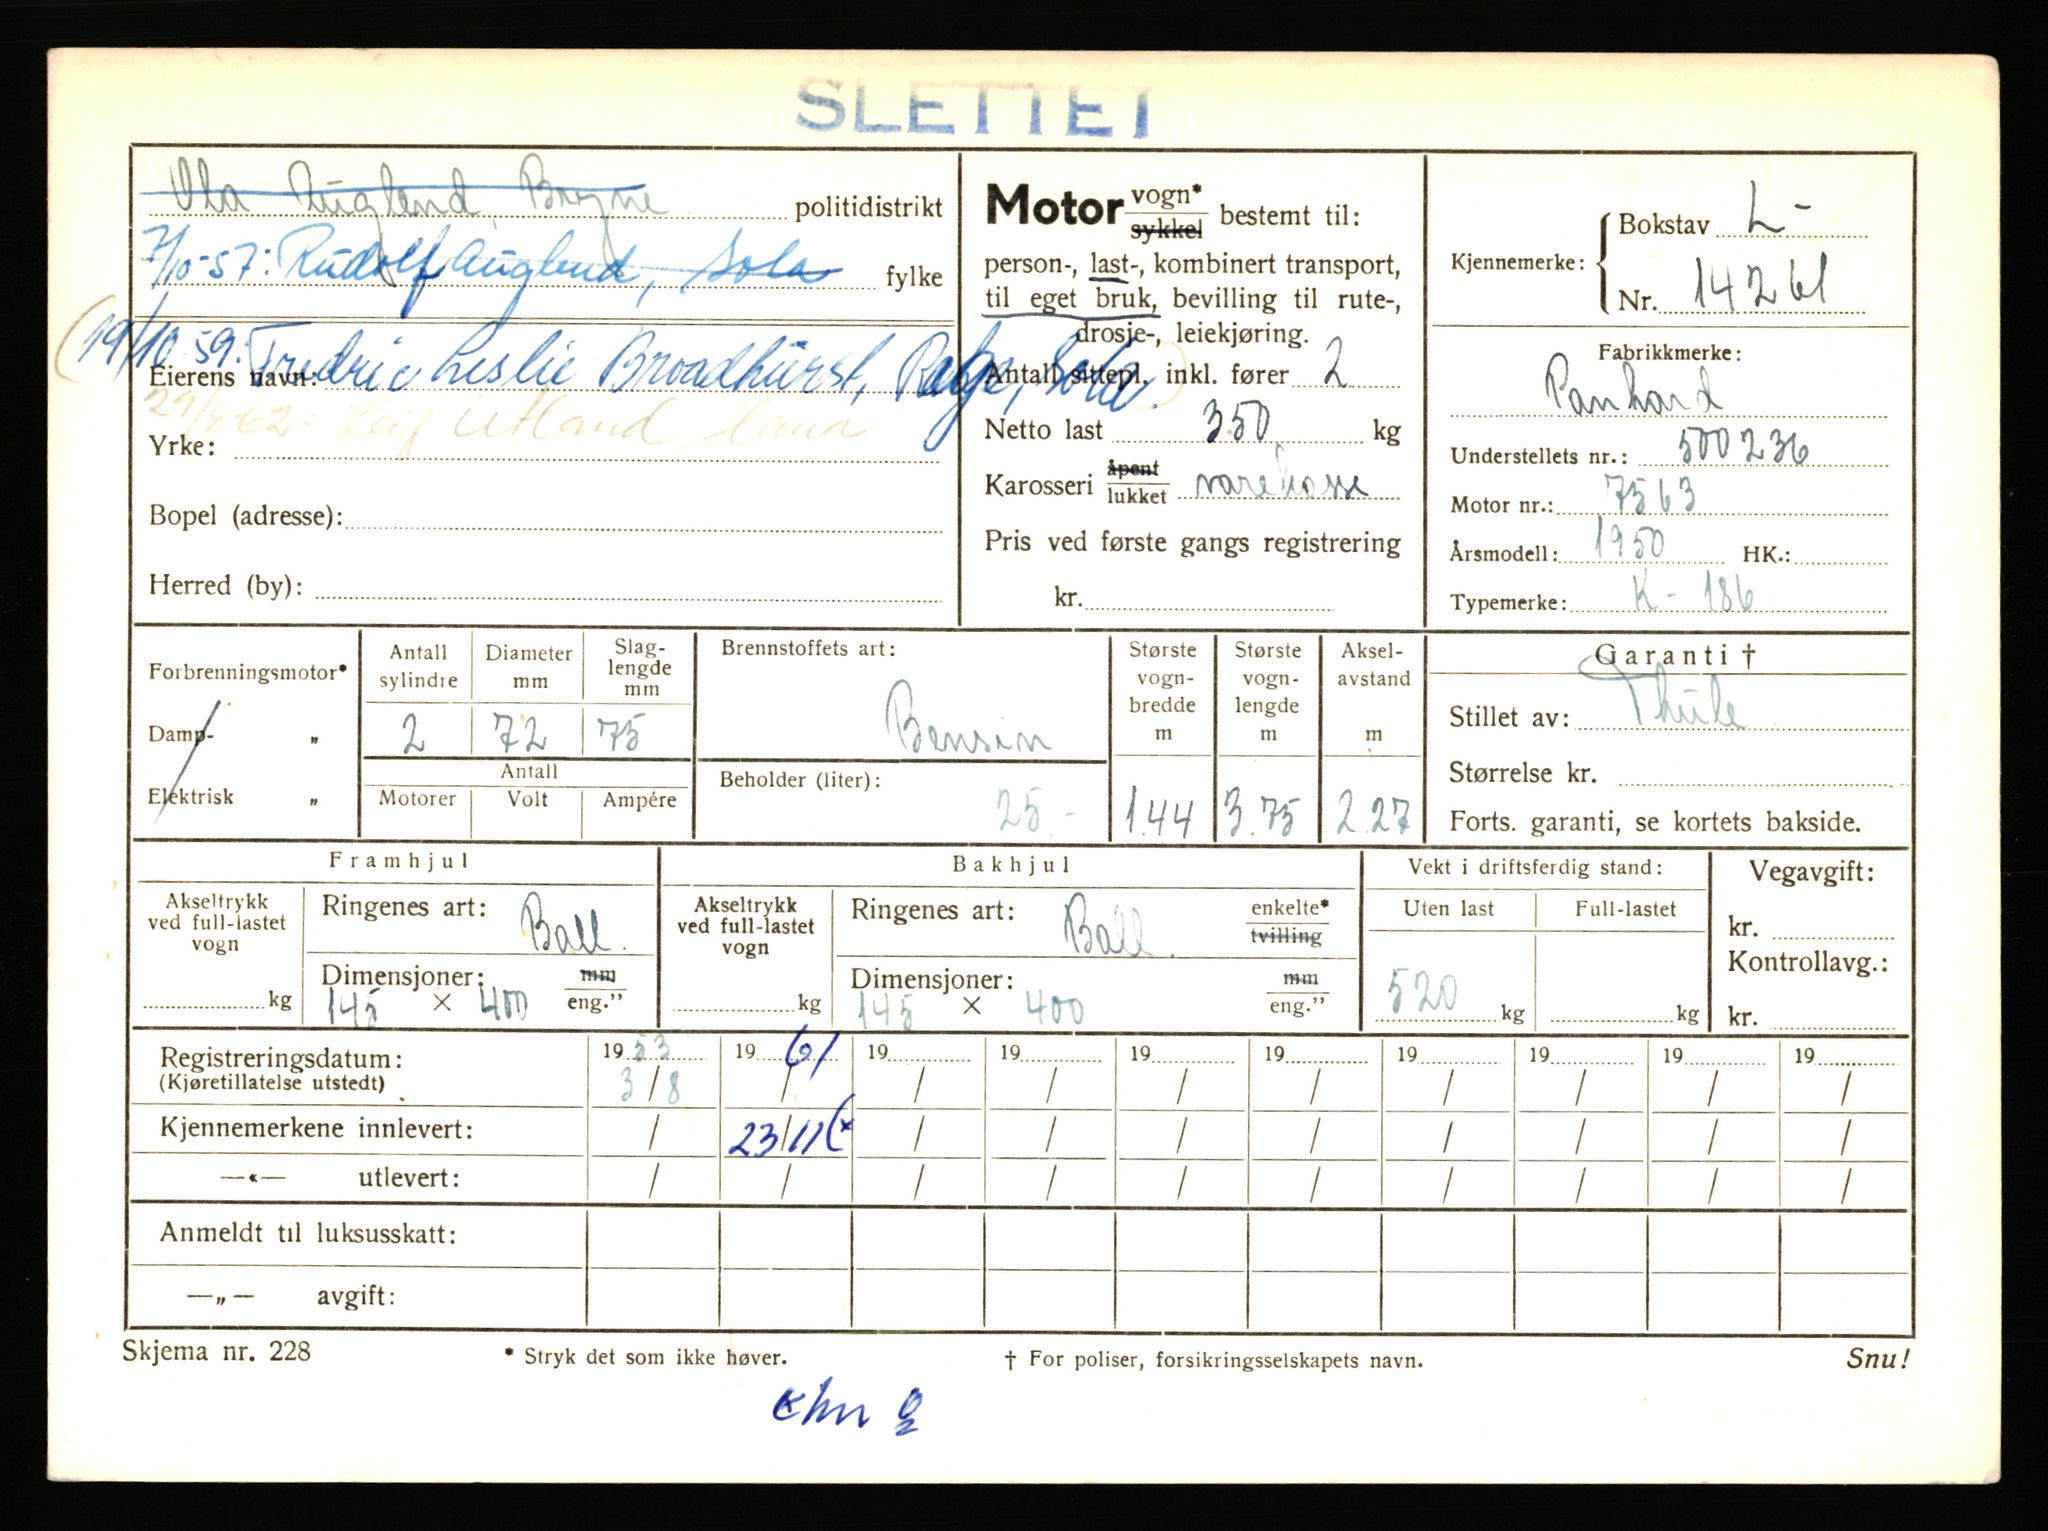 SLETTET
Ola Auglend, Bryne politidistrikt
7/10-57: Rudolf Auglend, Sola fylke
19/10-59: Fredric Leslie Broadhurst, Sola.
Eierens navn:
29/8-62: Leif Utland, Hana
Yrke:
Bopel (adresse):
Herred (by):
Motor vogn* / sykkel bestemt til:
person-, last-, kombinert transport,
til eget bruk, bevilling til rute-,
drosje-, leiekjøring.
Antall sittepl. inkl. fører 2
Netto last 350 kg
Karosseri åpent / lukket varekasse
Pris ved første gangs registrering
kr.
Kjennemerke: Bokstav L-
Nr. 14261
Fabrikkmerke:
Panhard
Understellets nr.: 500236
Motor nr.: 7563
Årsmodell: 1950 HK.:
Typemerke: K-186
Forbrenningsmotor*
Damp- „
Elektrisk „
Antall sylindre Diameter mm Slaglengde mm
2 72 75
Antall
Motorer Volt Ampére
Brennstoffets art:
Bensin
Beholder (liter):
25.-
Største vognbredde m 1.44
Største vognlengde m 3.75
Akselavstand m 2.27
Garanti †
Stillet av: Thule
Størrelse kr.
Forts. garanti, se kortets bakside.
Framhjul
Akseltrykk ved full-lastet vogn kg
Ringenes art: Ball.
Dimensjoner: mm / eng.”
145 × 400
Bakhjul
Akseltrykk ved full-lastet vogn kg
Ringenes art: Ball. enkelte* / tvilling
Dimensjoner: mm / eng.”
145 × 400
Vekt i driftsferdig stand:
Uten last Full-lastet
520 kg kg
Vegavgift:
kr.
Kontrollavg.:
kr.
Registreringsdatum: 1953 1961 19 19 19 19 19 19 19 19
(Kjøretillatelse utstedt) 3/8 / / / / / / / / /
Kjennemerkene innlevert: / 23/11 (* / / / / / / / /
—«— utlevert: / / / / / / / / / /
Anmeldt til luksusskatt:
—„— avgift:
Skjema nr. 228 * Stryk det som ikke høver. † For poliser, forsikringsselskapets navn. Snu!